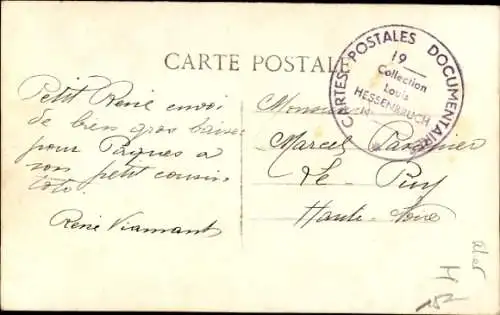 CARTE POSTALE
CARTES POSTALES DOCUMENTAIRES
19
Collection
Louis
HESSENBRUCH
Petit René envoi
de bien gros baiser
pour Pâques à
son petit cousin
toto
René Viamant
Monsieur
Marcel
Le Puy
Haute-Loire
H
152